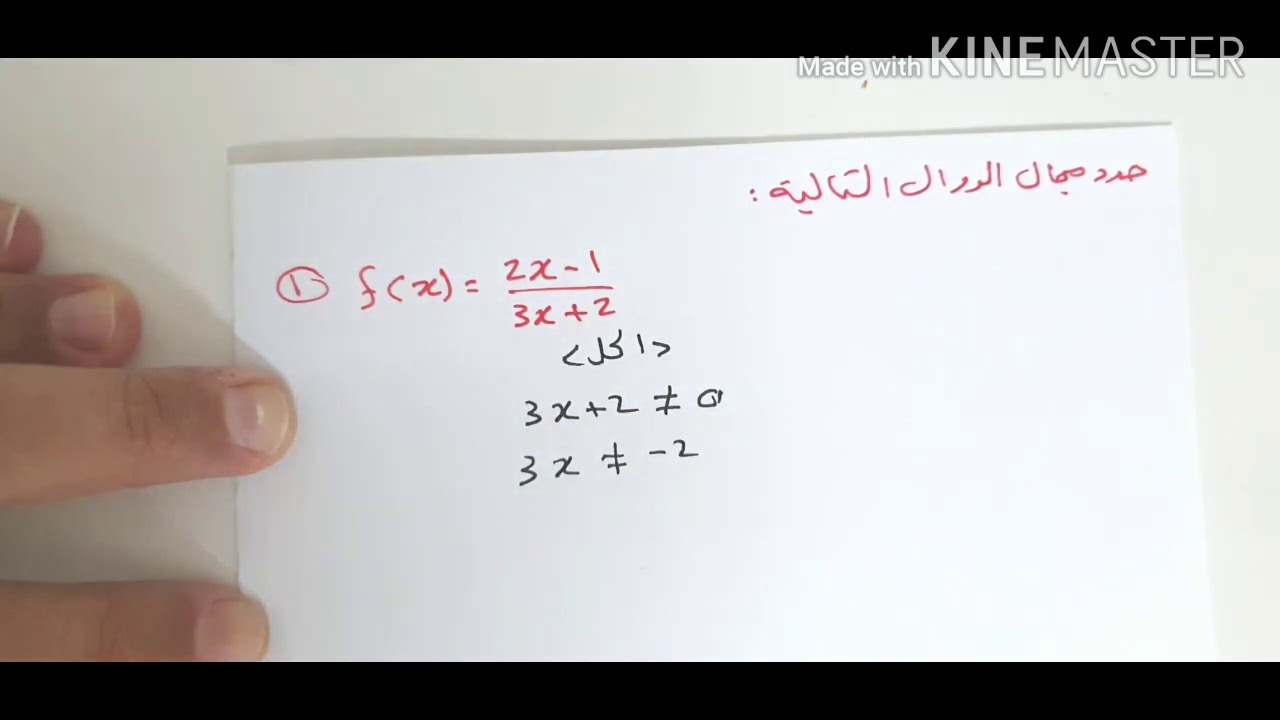 Made with KINEMASTER
حدد مجال الدوال التالية :
① f(x) = \frac{2x-1}{3x+2}
<الحل>
3x+2 ≠ 0
3x ≠ -2